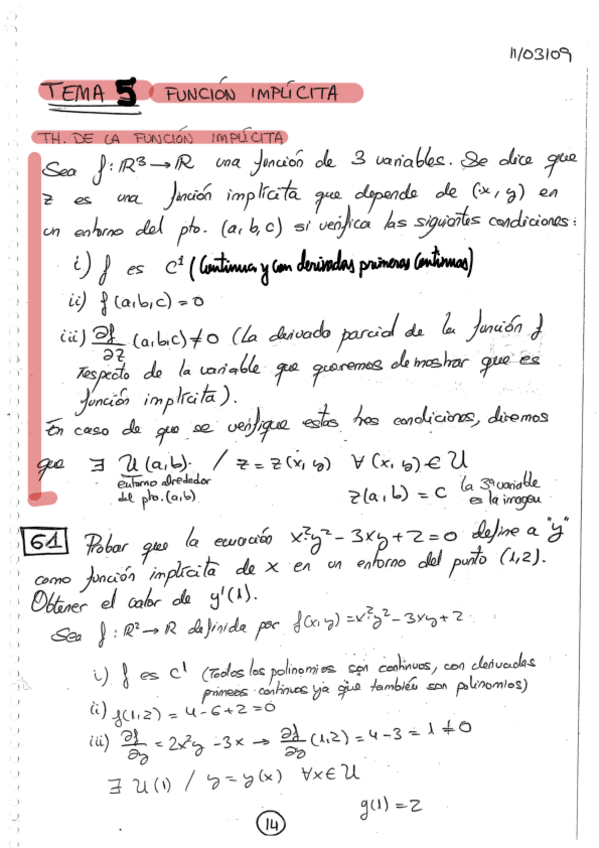 11/03/09
TEMA 5 FUNCIÓN IMPLÍCITA
TH. DE LA FUNCIÓN IMPLÍCITA
Sea f: ℝ³→ℝ una función de 3 variables. Se dice que
z es una función implícita que depende de (x, y) en
un entorno del pto. (a, b, c) si verifica las siguientes condiciones:
i) f es C¹ (Continua y con derivadas primeras continuas)
ii) f(a,b,c) = 0
iii) ∂f/∂z (a,b,c) ≠ 0 (La derivada parcial de la función f
respecto de la variable que queremos demostrar que es
función implícita).
En caso de que se verifique estas tres condiciones, diremos
que ∃ U(a,b). / z = z(x, y) ∀(x, y) ∈ U
entorno alrededor
del pto. (a,b)
z(a, b) = c
la 3ª variable
es la imagen
61 Probar que la ecuación x²y² - 3xy + 2 = 0 define a "y"
como función implícita de x en un entorno del punto (1,2).
Obtener el valor de y'(1).
Sea f: ℝ²→ℝ definida por f(x,y) = x²y² - 3xy + 2
i) f es C¹ (Todos los polinomios son continuos, con derivadas
primeras continuas ya que también son polinomios)
ii) f(1,2) = 4 - 6 + 2 = 0
iii) ∂f/∂y = 2x²y - 3x → ∂f/∂y (1,2) = 4 - 3 = 1 ≠ 0
∃ U(1) / y = y(x) ∀x ∈ U
y(1) = 2
14